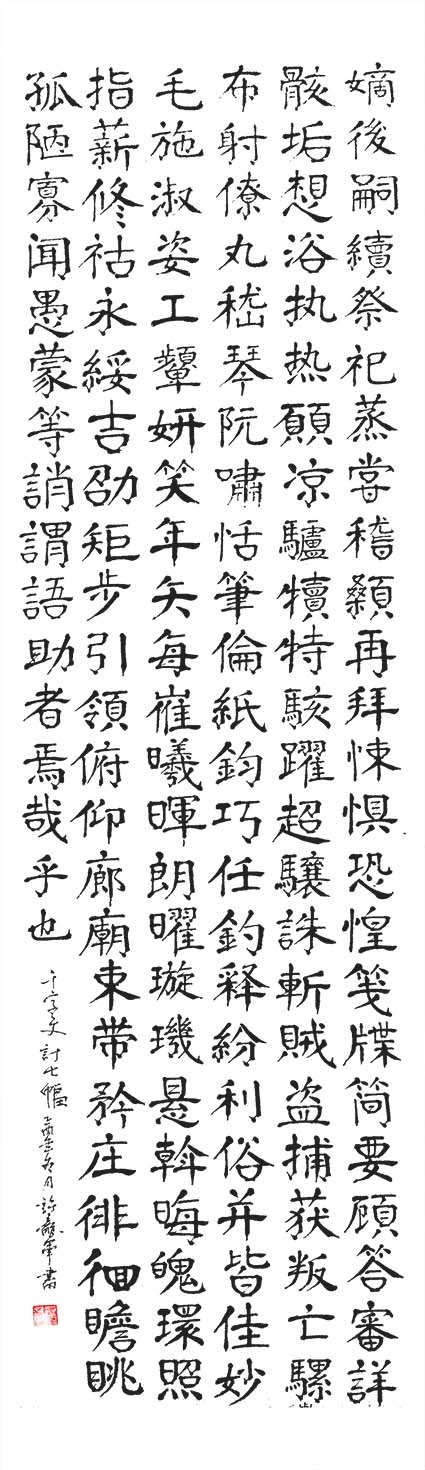 嫡後嗣續祭祀蒸尝稽顙再拜悚惧恐惶箋牒简要顾答審詳
骸垢想浴执热願凉驢犢特駭躍超驤誅斬賊盗捕获叛亡騾
布射僚丸嵇琴阮嘯恬筆倫紙鈞巧任釣释紛利俗并皆佳妙
毛施淑姿工顰妍笑年矢每崔曦暉朗曜璇璣悬斡晦魄環照
指薪修祜永綏吉劭矩步引領俯仰廊廟束带矜庄徘徊瞻眺
孤陋寡闻愚蒙等誚謂語助者焉哉乎也
千字文計七幅